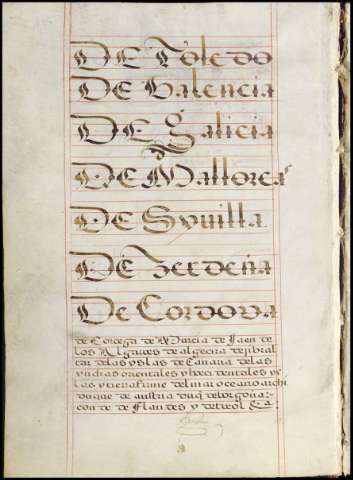 DE Toledo
DE Valencia
DE galicia
DE Mallorcas
DE Sevilla
DE Zerdeña
De Cordova
de Corcega de Murcia de Jaen de
los Algarves de algecira de jibral
tar de las yslas de Canaria de las
yndias orientales y occidentales ys
las y tierra firme del mar oceano archi
duque de austria duq̃ de borgoña
conde de Flandes y de tirol &a